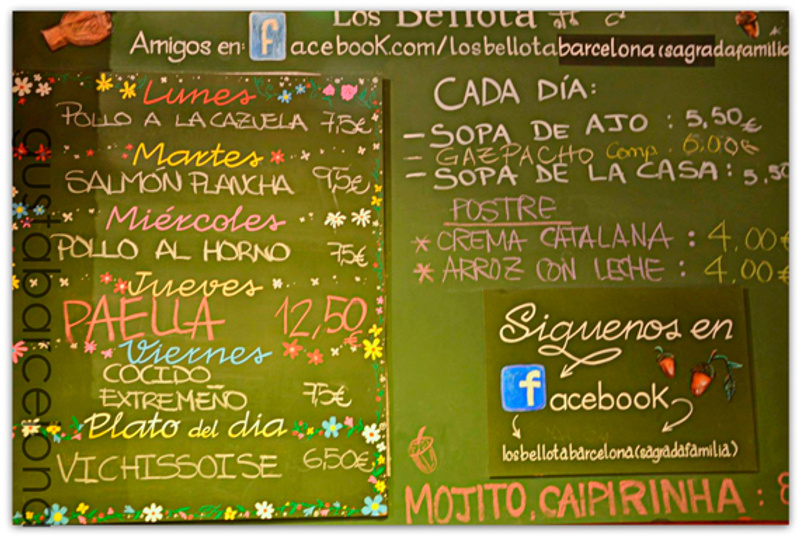 Los Bellota
Amigos en: facebook.com/losbellotabarcelona(sagradafamilia
Lunes
POLLO A LA CAZUELA 7,5€
Martes
SALMÓN PLANCHA 9,5€
Miércoles
POLLO AL HORNO 7,5€
Jueves
PAELLA 12,50€
Viernes
COCIDO
EXTREMEÑO 7,5€
Plato del día
VICHISSOISE 6,50€
CADA DÍA:
- SOPA DE AJO : 5,50€
- GAZPACHO Comp. 6.00€
- SOPA DE LA CASA : 5,50
POSTRE
* CREMA CATALANA : 4,00€
* ARROZ CON LECHE : 4,00€
Siguenos en
facebook
losbellotabarcelona(sagradafamilia)
MOJITO, CAIPIRINHA : 8
gustabarcelona